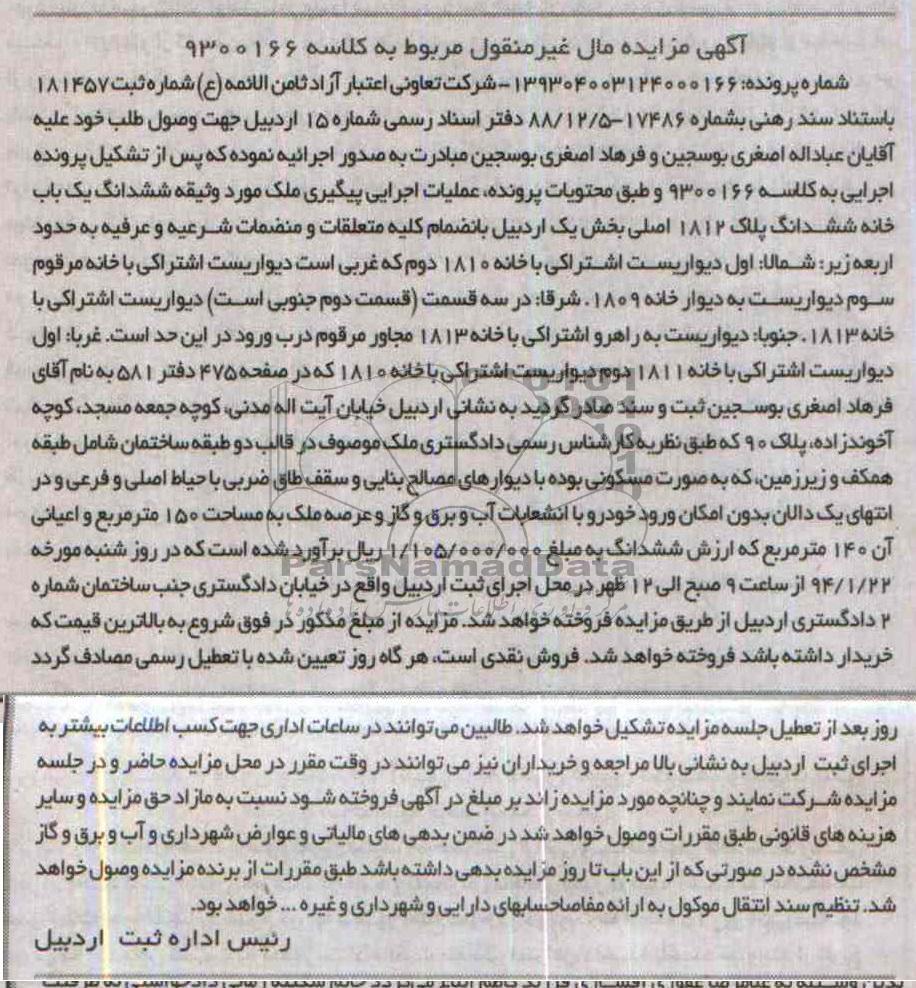 آگهی مزایده مال غیرمنقول مربوط به کلاسه ۹۳۰۰۱۶۶
شماره پرونده: ۱۳۹۳۰۴۰۰۳۱۲۴۰۰۰۱۶۶ - شرکت تعاونی اعتبار آزاد ثامن الائمه (ع) شماره ثبت ۱۸۱۴۵۷
باستناد سند رهنی بشماره ۱۷۴۸۶-۸۸/۱۲/۵ دفتر اسناد رسمی شماره ۱۵ اردبیل جهت وصول طلب خود علیه
آقایان عباداله اصغری بوسجین و فرهاد اصغری بوسجین مبادرت به صدور اجرائیه نموده که پس از تشکیل پرونده
اجرایی به کلاسه ۹۳۰۰۱۶۶ و طبق محتویات پرونده، عملیات اجرایی پیگیری ملک مورد وثیقه ششدانگ یک باب
خانه ششدانگ پلاک ۱۸۱۲ اصلی بخش یک اردبیل بانضمام کلیه متعلقات و منضمات شرعیه و عرفیه به حدود
اربعه زیر: شمالا: اول دیواریست اشتراکی با خانه ۱۸۱۰ دوم که غربی است دیواریست اشتراکی با خانه مرقوم
سوم دیواریست به دیوار خانه ۱۸۰۹. شرقا: در سه قسمت (قسمت دوم جنوبی است) دیواریست اشتراکی با
خانه ۱۸۱۳. جنوبا: دیواریست به راهرو اشتراکی با خانه ۱۸۱۳ مجاور مرقوم درب ورود در این حد است. غربا: اول
دیواریست اشتراکی با خانه ۱۸۱۱ دوم دیواریست اشتراکی با خانه ۱۸۱۰ که در صفحه ۴۷۵ دفتر ۵۸۱ به نام آقای
فرهاد اصغری بوسجین ثبت و سند صادر گردید به نشانی اردبیل خیابان آیت اله مدنی، کوچه جمعه مسجد، کوچه
آخوندزاده، پلاک ۹۰ که طبق نظریه کارشناس رسمی دادگستری ملک موصوف در قالب دو طبقه ساختمان شامل طبقه
همکف و زیرزمین، که به صورت مسکونی بوده با دیوارهای مصالح بنایی و سقف طاق ضربی با حیاط اصلی و فرعی و در
انتهای یک دالان بدون امکان ورود خودرو با انشعابات آب و برق و گاز و عرصه ملک به مساحت ۱۵۰ مترمربع و اعیانی
آن ۱۴۰ مترمربع که ارزش ششدانگ به مبلغ ۱/۱۰۵/۰۰۰/۰۰۰ ریال برآورد شده است که در روز شنبه مورخه
ParsNamadData
۹۴/۱/۲۲ از ساعت ۹ صبح الی ۱۲ ظهر در محل اجرای ثبت اردبیل واقع در خیابان دادگستری جنب ساختمان شماره
۲ دادگستری اردبیل از طریق مزایده فروخته خواهد شد. مزایده از مبلغ مذکور در فوق شروع به بالاترین قیمت که
خریدار داشته باشد فروخته خواهد شد. فروش نقدی است، هر گاه روز تعیین شده با تعطیل رسمی مصادف گردد
روز بعد از تعطیل جلسه مزایده تشکیل خواهد شد. طالبین می توانند در ساعات اداری جهت کسب اطلاعات بیشتر به
اجرای ثبت اردبیل به نشانی بالا مراجعه و خریداران نیز می توانند در وقت مقرر در محل مزایده حاضر و در جلسه
مزایده شرکت نمایند و چنانچه مورد مزایده زائد بر مبلغ در آگهی فروخته شود نسبت به مازاد حق مزایده و سایر
هزینه های قانونی طبق مقررات وصول خواهد شد در ضمن بدهی های مالیاتی و عوارض شهرداری و آب و برق و گاز
مشخص نشده در صورتی که از این باب تا روز مزایده بدهی داشته باشد طبق مقررات از برنده مزایده وصول خواهد
شد. تنظیم سند انتقال موکول به ارائه مفاصاحسابهای دارایی و شهرداری و غیره ... خواهد بود.
رئیس اداره ثبت اردبیل